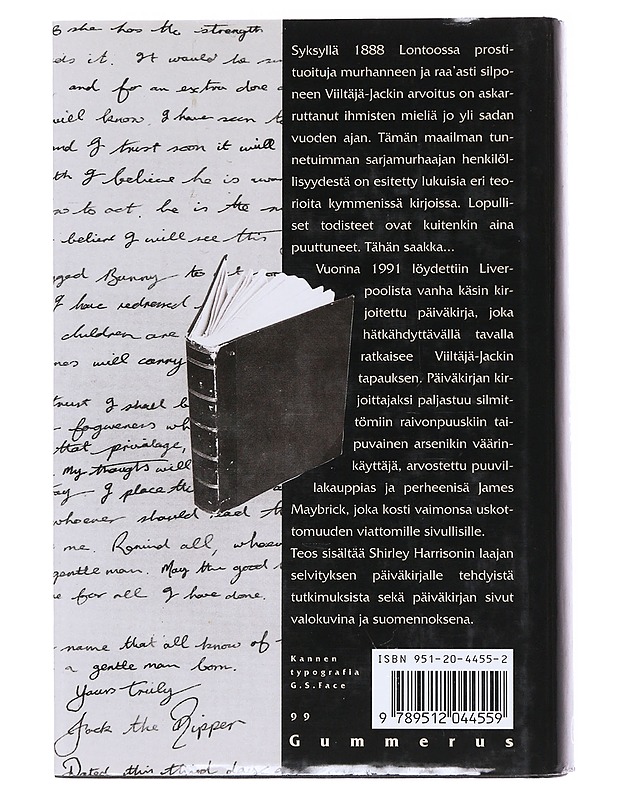 she has the strength
it. It would be
and for an extra dose
will know. I have seen
and I trust soon it will
I believe he is
to act. he is the
believe I will see this
Bunny to
I have redressed
children are
will carry
trust I shall
forgiveness
that privalage,
My thoughts will
I place
whoever should read
me. Remind all, whoever
gentle man. May the good
for all I have done.
name that all know of
a gentle man born.
Yours truly
Jack the Ripper
Dated this third day
Syksyllä 1888 Lontoossa prosti-
tuoituja murhanneen ja raa'asti silpo-
neen Viiltäjä-Jackin arvoitus on askar-
ruttanut ihmisten mieliä jo yli sadan
vuoden ajan. Tämän maailman tun-
netuimman sarjamurhaajan henkilöl-
lisyydestä on esitetty lukuisia eri teo-
rioita kymmenissä kirjoissa. Lopulli-
set todisteet ovat kuitenkin aina
puuttuneet. Tähän saakka...
Vuonna 1991 löydettiin Liver-
poolista vanha käsin kir-
joitettu päiväkirja, joka
hätkähdyttävällä tavalla
ratkaisee Viiltäjä-Jackin
tapauksen. Päiväkirjan kir-
joittajaksi paljastuu silmit-
tömiin raivonpuuskiin tai-
puvainen arsenikin väärin-
käyttäjä, arvostettu puuvil-
lakauppias ja perheenisä James
Maybrick, joka kosti vaimonsa uskot-
tomuuden viattomille sivullisille.
Teos sisältää Shirley Harrisonin laajan
selvityksen päiväkirjalle tehdyistä
tutkimuksista sekä päiväkirjan sivut
valokuvina ja suomennoksena.
Kannen
typografia
G.S.Face
ISBN 951-20-4455-2
99
9 789512 044559
Gummerus